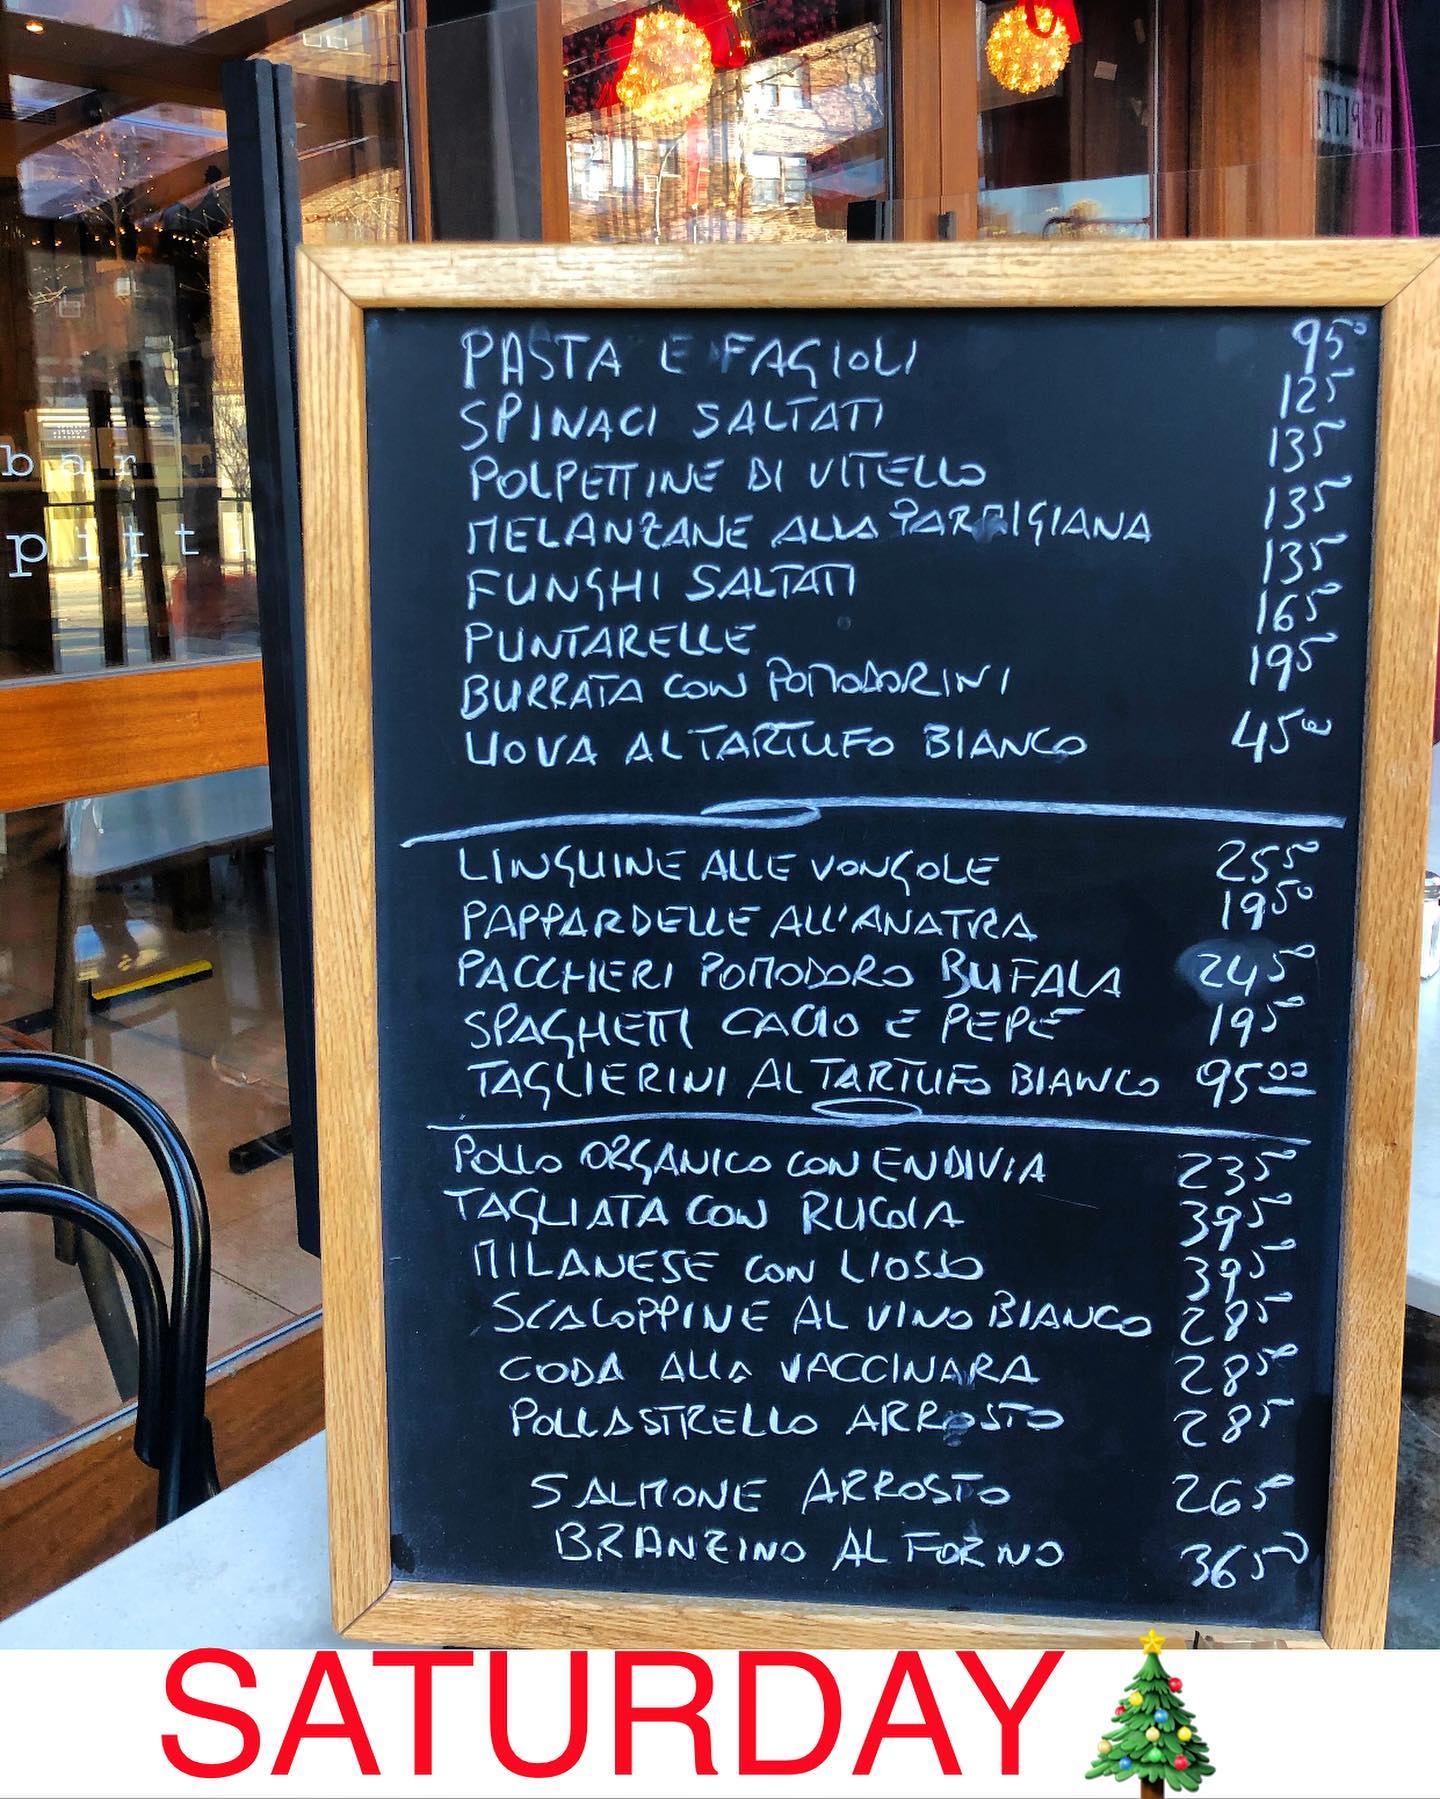 PASTA E FAGIOLI 950
SPINACI SALTATI 1250
POLPETTINE DI VITELLO 1350
MELANZANE ALLA PARMIGIANA 1350
FUNGHI SALTATI 1350
PUNTARELLE 1650
BURRATA CON POMODORINI 1950
UOVA AL TARTUFO BIANCO 4500
LINGUINE ALLE VONGOLE 2550
PAPPARDELLE ALL'ANATRA 1950
PACCHERI POMODORO BUFALA 2450
SPAGHETTI CACIO E PEPE 1950
TAGLIERINI AL TARTUFO BIANCO 9500
POLLO ORGANICO CON ENDIVIA 2350
TAGLIATA CON RUCOLA 3950
MILANESE CON L'OSSO 3950
SCALOPPINE AL VINO BIANCO 2850
CODA ALLA VACCINARA 2850
POLLASTRELLO ARROSTO 2850
SALMONE ARROSTO 2650
BRANZINO AL FORNO 3650
bar
pitti
SATURDAY🎄